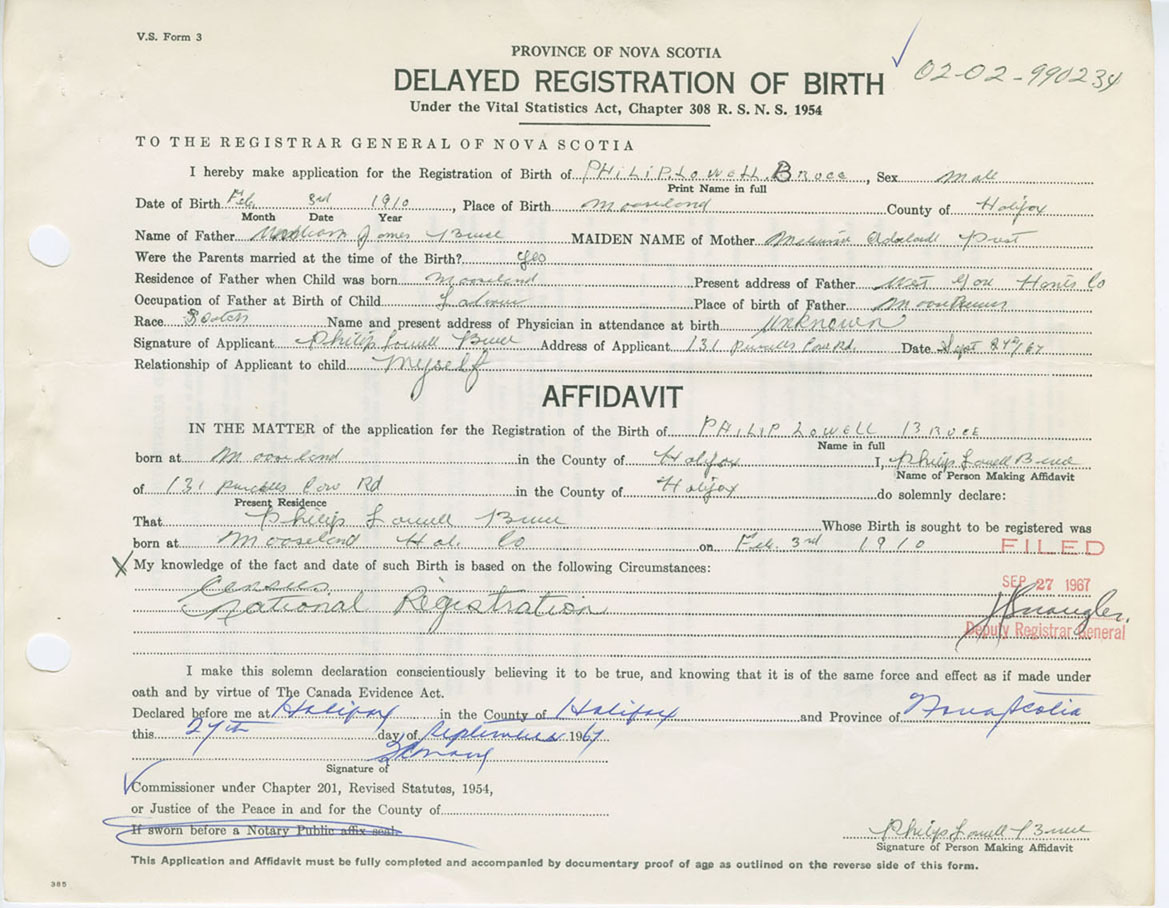 V.S. Form 3
PROVINCE OF NOVA SCOTIA
DELAYED REGISTRATION OF BIRTH
02-02-990234
Under the Vital Statistics Act, Chapter 308 R. S. N. S. 1954
TO THE REGISTRAR GENERAL OF NOVA SCOTIA
I hereby make application for the Registration of Birth of PHILIP LOWELL Bruce, Sex Male
Print Name in full
Date of Birth Feb. 3rd 1910, Place of Birth Mooseland County of Halifax
Month Date Year
Name of Father William James Bruce MAIDEN NAME of Mother Adelaide Prest
Were the Parents married at the time of the Birth? yes
Residence of Father when Child was born Mooseland Present address of Father West Gore Hants Co
Occupation of Father at Birth of Child Place of birth of Father
Race Scotch Name and present address of Physician in attendance at birth unknown
Signature of Applicant Philip Lowell Bruce Address of Applicant 131 Purcells Cove Rd. Date Sept 27th/67
Relationship of Applicant to child Myself
AFFIDAVIT
IN THE MATTER of the application for the Registration of the Birth of PHILIP LOWELL BRUCE
Name in full
born at Mooseland in the County of Halifax I, Philip Lowell Bruce
Name of Person Making Affidavit
of 131 Purcells Cove Rd in the County of Halifax do solemnly declare:
Present Residence
That Philip Lowell Bruce Whose Birth is sought to be registered was
born at Mooseland Hal. Co on Feb. 3rd 1910
FILED
My knowledge of the fact and date of such Birth is based on the following Circumstances:
Census
SEP 27 1967
National Registration
Deputy Registrar General
I make this solemn declaration conscientiously believing it to be true, and knowing that it is of the same force and effect as if made under
oath and by virtue of The Canada Evidence Act.
Declared before me at Halifax in the County of Halifax and Province of Nova Scotia
this 27th day of September 1967
Signature of
Commissioner under Chapter 201, Revised Statutes, 1954,
or Justice of the Peace in and for the County of
If sworn before a Notary Public affix seal.
Philip Lowell Bruce
Signature of Person Making Affidavit
This Application and Affidavit must be fully completed and accompanied by documentary proof of age as outlined on the reverse side of this form.
385